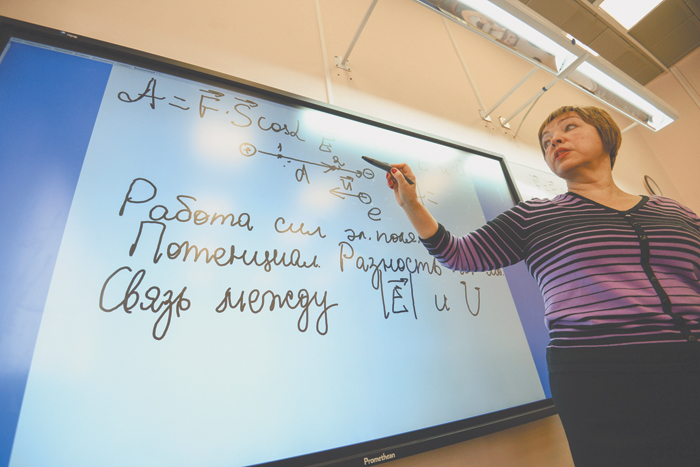 A = F⃗ · S⃗ cosα
+ 1 E⃗ 2 −
d
v⃗ −
e
Работа сил эл. поля
Потенциал. Разность
Связь между |E⃗| и U
Promethean